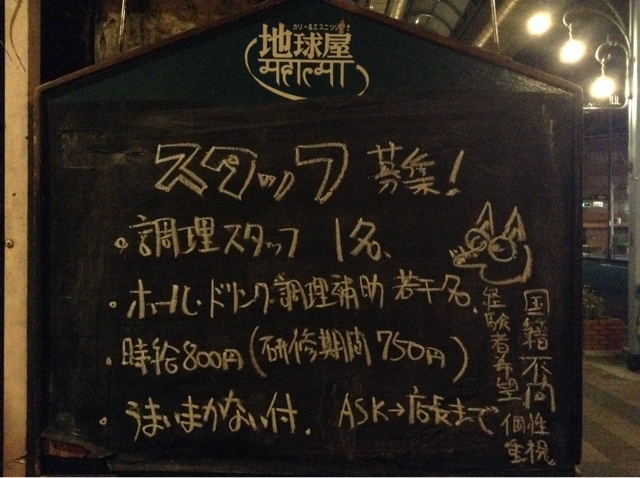 カリー&エスニック
地球屋
महात्मा
スタッフ 募集!
・調理スタッフ 1名、
・ホール・ドリンク・調理補助 若干名、
・時給800円(研修期間750円)
・うまいまかない付. ASK→店長まで
国籍不問
経験者希望
個性重視